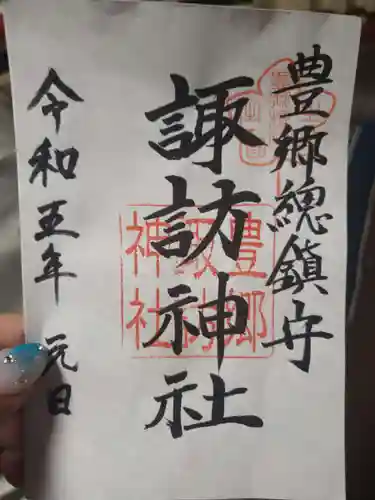 豊郷總鎮守
諏訪神社
豊郷
諏訪
神社
令和五年 元日